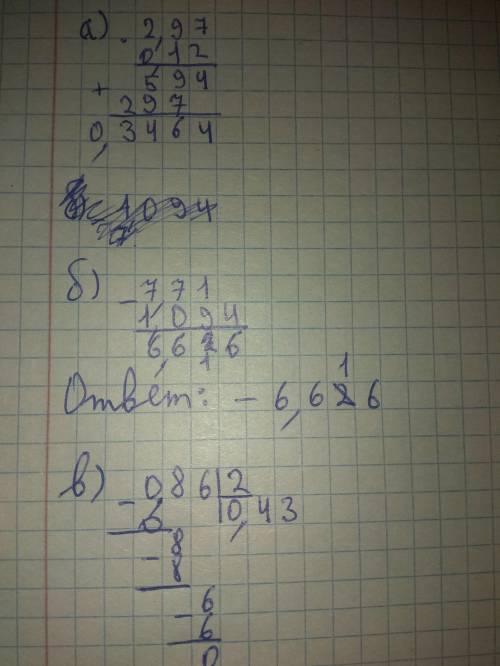 а) . 2,97
0,12
594
+
297
0,3464
б) - 7 7 1
1,0 9 4
6,6 1 6
Ответ: - 6,6 1 6
в) - 0 8 6 2
0 0,43
- 8
8
6
- 6
0